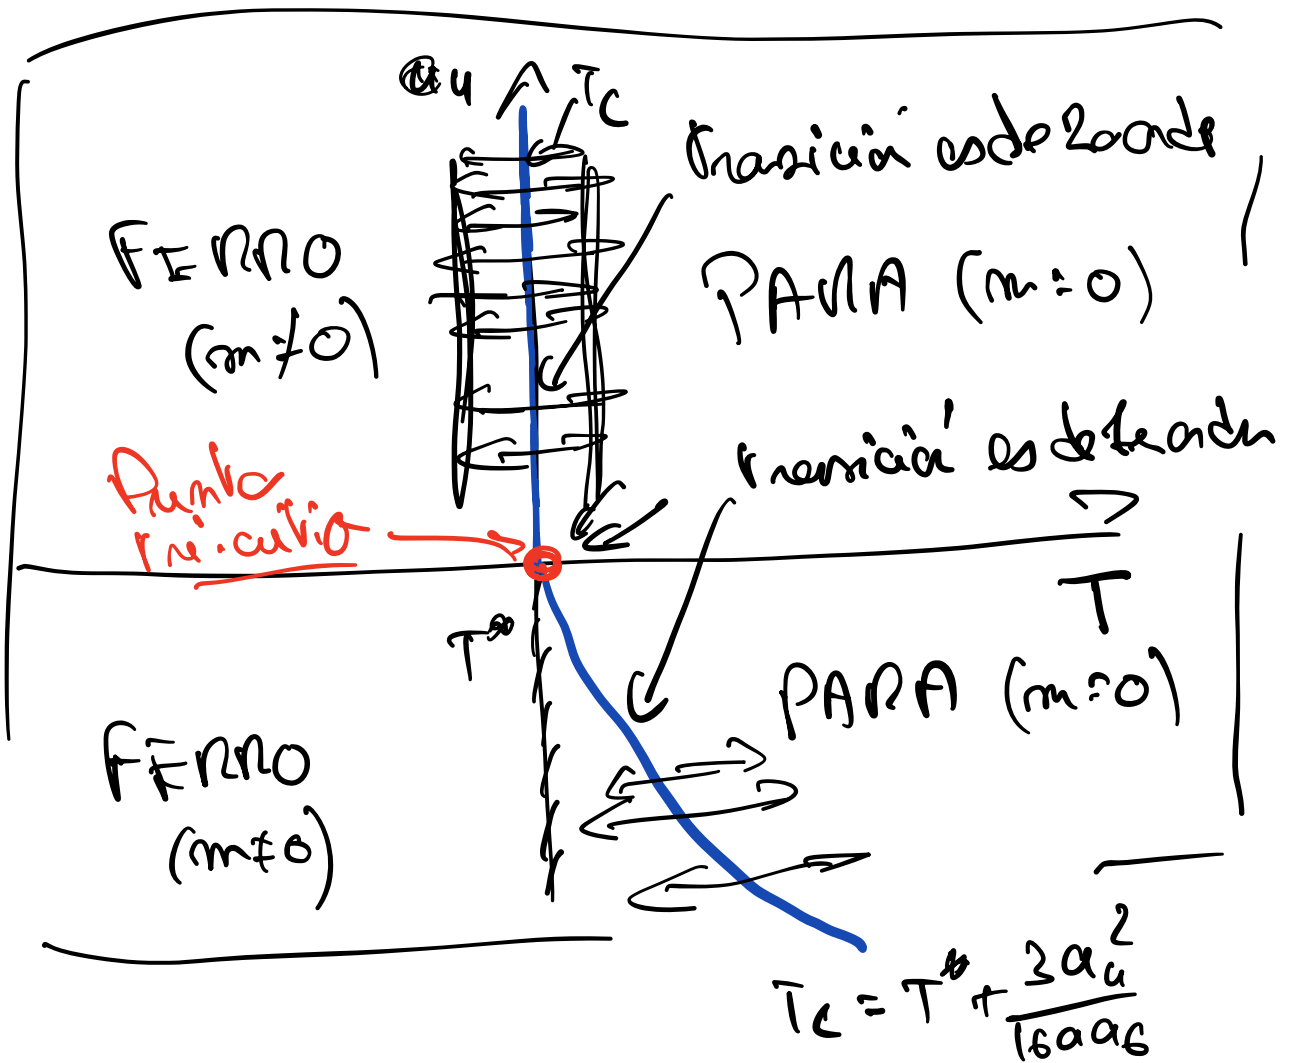 a4
Tc
transición es de 2o orden
FERRO
(m≠0)
PARA (m=0)
transición es de 1er orden
Punto
tri-crítico
T
T*
PARA (m=0)
FERRO
(m≠0)
Tc = T* + 3a4² / 16 a a6